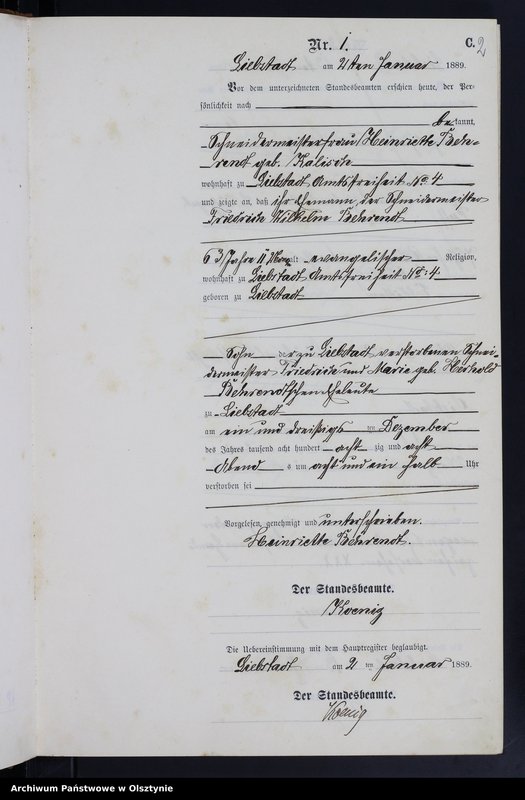 Nr. 1.
C.
2
Liebstadt am 2ten Januar 1889.
Vor dem unterzeichneten Standesbeamten erschien heute, der Per-
sönlichkeit nach
bekannt,
Schneidermeisterfrau Heinriette Beh-
rendt geb. Kalisch
wohnhaft zu Liebstadt Amtsfreiheit No 4
und zeigte an, daß ihr Ehemann, der Schneidermeister
Friedrich Wilhelm Behrendt
63 Jahre 11 Mon alt evangelischer Religion,
wohnhaft zu Liebstadt Amtsfreiheit No: 4
geboren zu Liebstadt
Sohn der zu Liebstadt verstorbenen Schnei-
dermeister Friedrich und Marie geb.
Behrendtschen Eheleute
zu Liebstadt
am ein und dreißigsten Dezember
des Jahres tausend acht hundert achtzig und acht
Abends um acht und ein halb Uhr
verstorben sei
Vorgelesen, genehmigt und unterschrieben.
Heinriette Behrendt.
Der Standesbeamte.
Koenig
Die Uebereinstimmung mit dem Hauptregister beglaubigt.
Liebstadt am 2 ten Januar 1889.
Der Standesbeamte.
Koenig
Archiwum Państwowe w Olsztynie